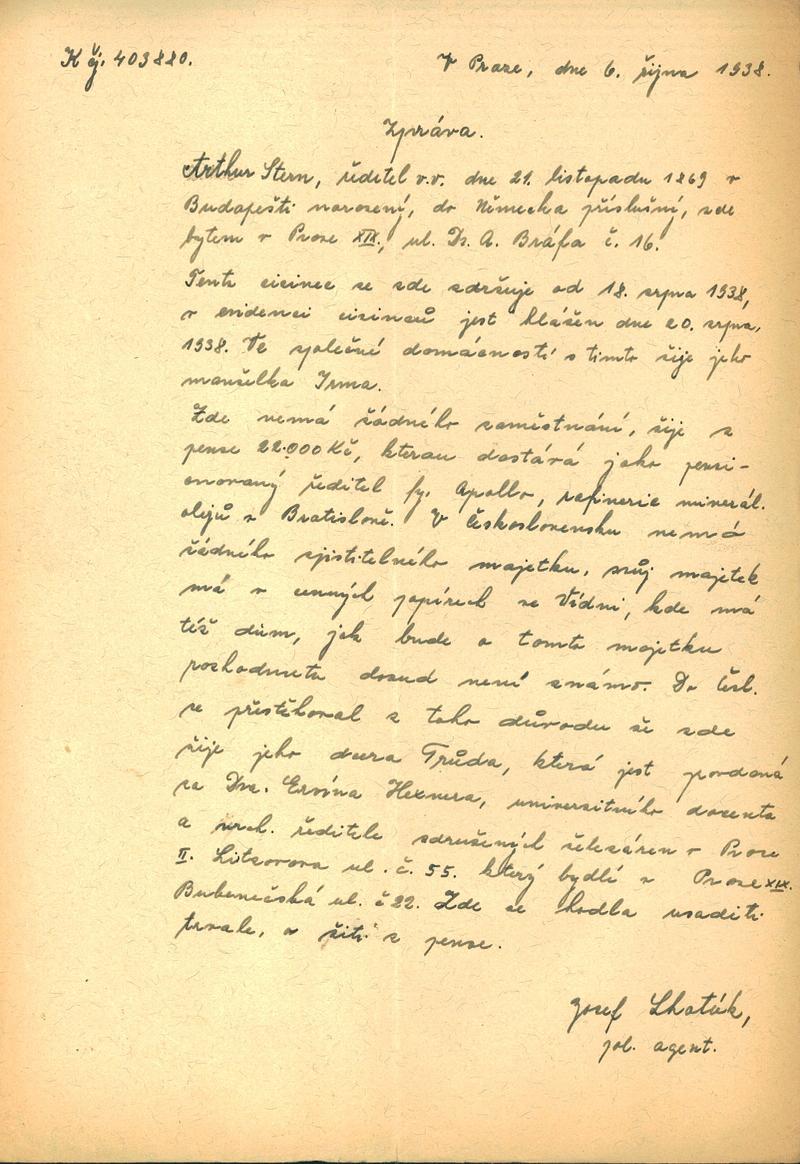 K čj. 403880.
V Praze, dne 6. října 1938.
Zpráva.
Arthur Stern, ředitel v.v. dne 21. listopadu 1869 v
Budapešti narozený, do Německa příslušný, zde
bytem v Praze XIX., ul. Dr. A. Bráfa č. 16.
Tento cizinec se zde zdržuje od 18. srpna 1938,
v evidenci cizinců jest hlášen dne 20. srpna,
1938. Ve společné domácnosti s tímto žije jeho
manželka Irma.
Zde nemá žádného zaměstnání, žije z
pense 22.000 Kč, kterou dostává jako pensi-
onovaný ředitel fy. Apollo, rafinerie minerál.
olejů v Bratislavě. V Československu nemá
žádného zjistitelného majetku, svůj majetek
má v cenných papírech ve Vídni, kde má
též dům, jak bude o tomto majetku
rozhodnuto dosud není známo. Do Čsl.
se přestěhoval z toho důvodu že zde
žije jeho dcera Trůda, která jest provdaná
za Dra. Ervína Hexnera, universitního docenta
a vrch. ředitele sdružených železáren v Praze
II. ul. č. 55. který bydlí v Praze XIX.
Bubenečská ul. č 22. Zde se hodlá usaditi
trvale, a žíti z pense.
Josef Lhoták,
pol. agent.